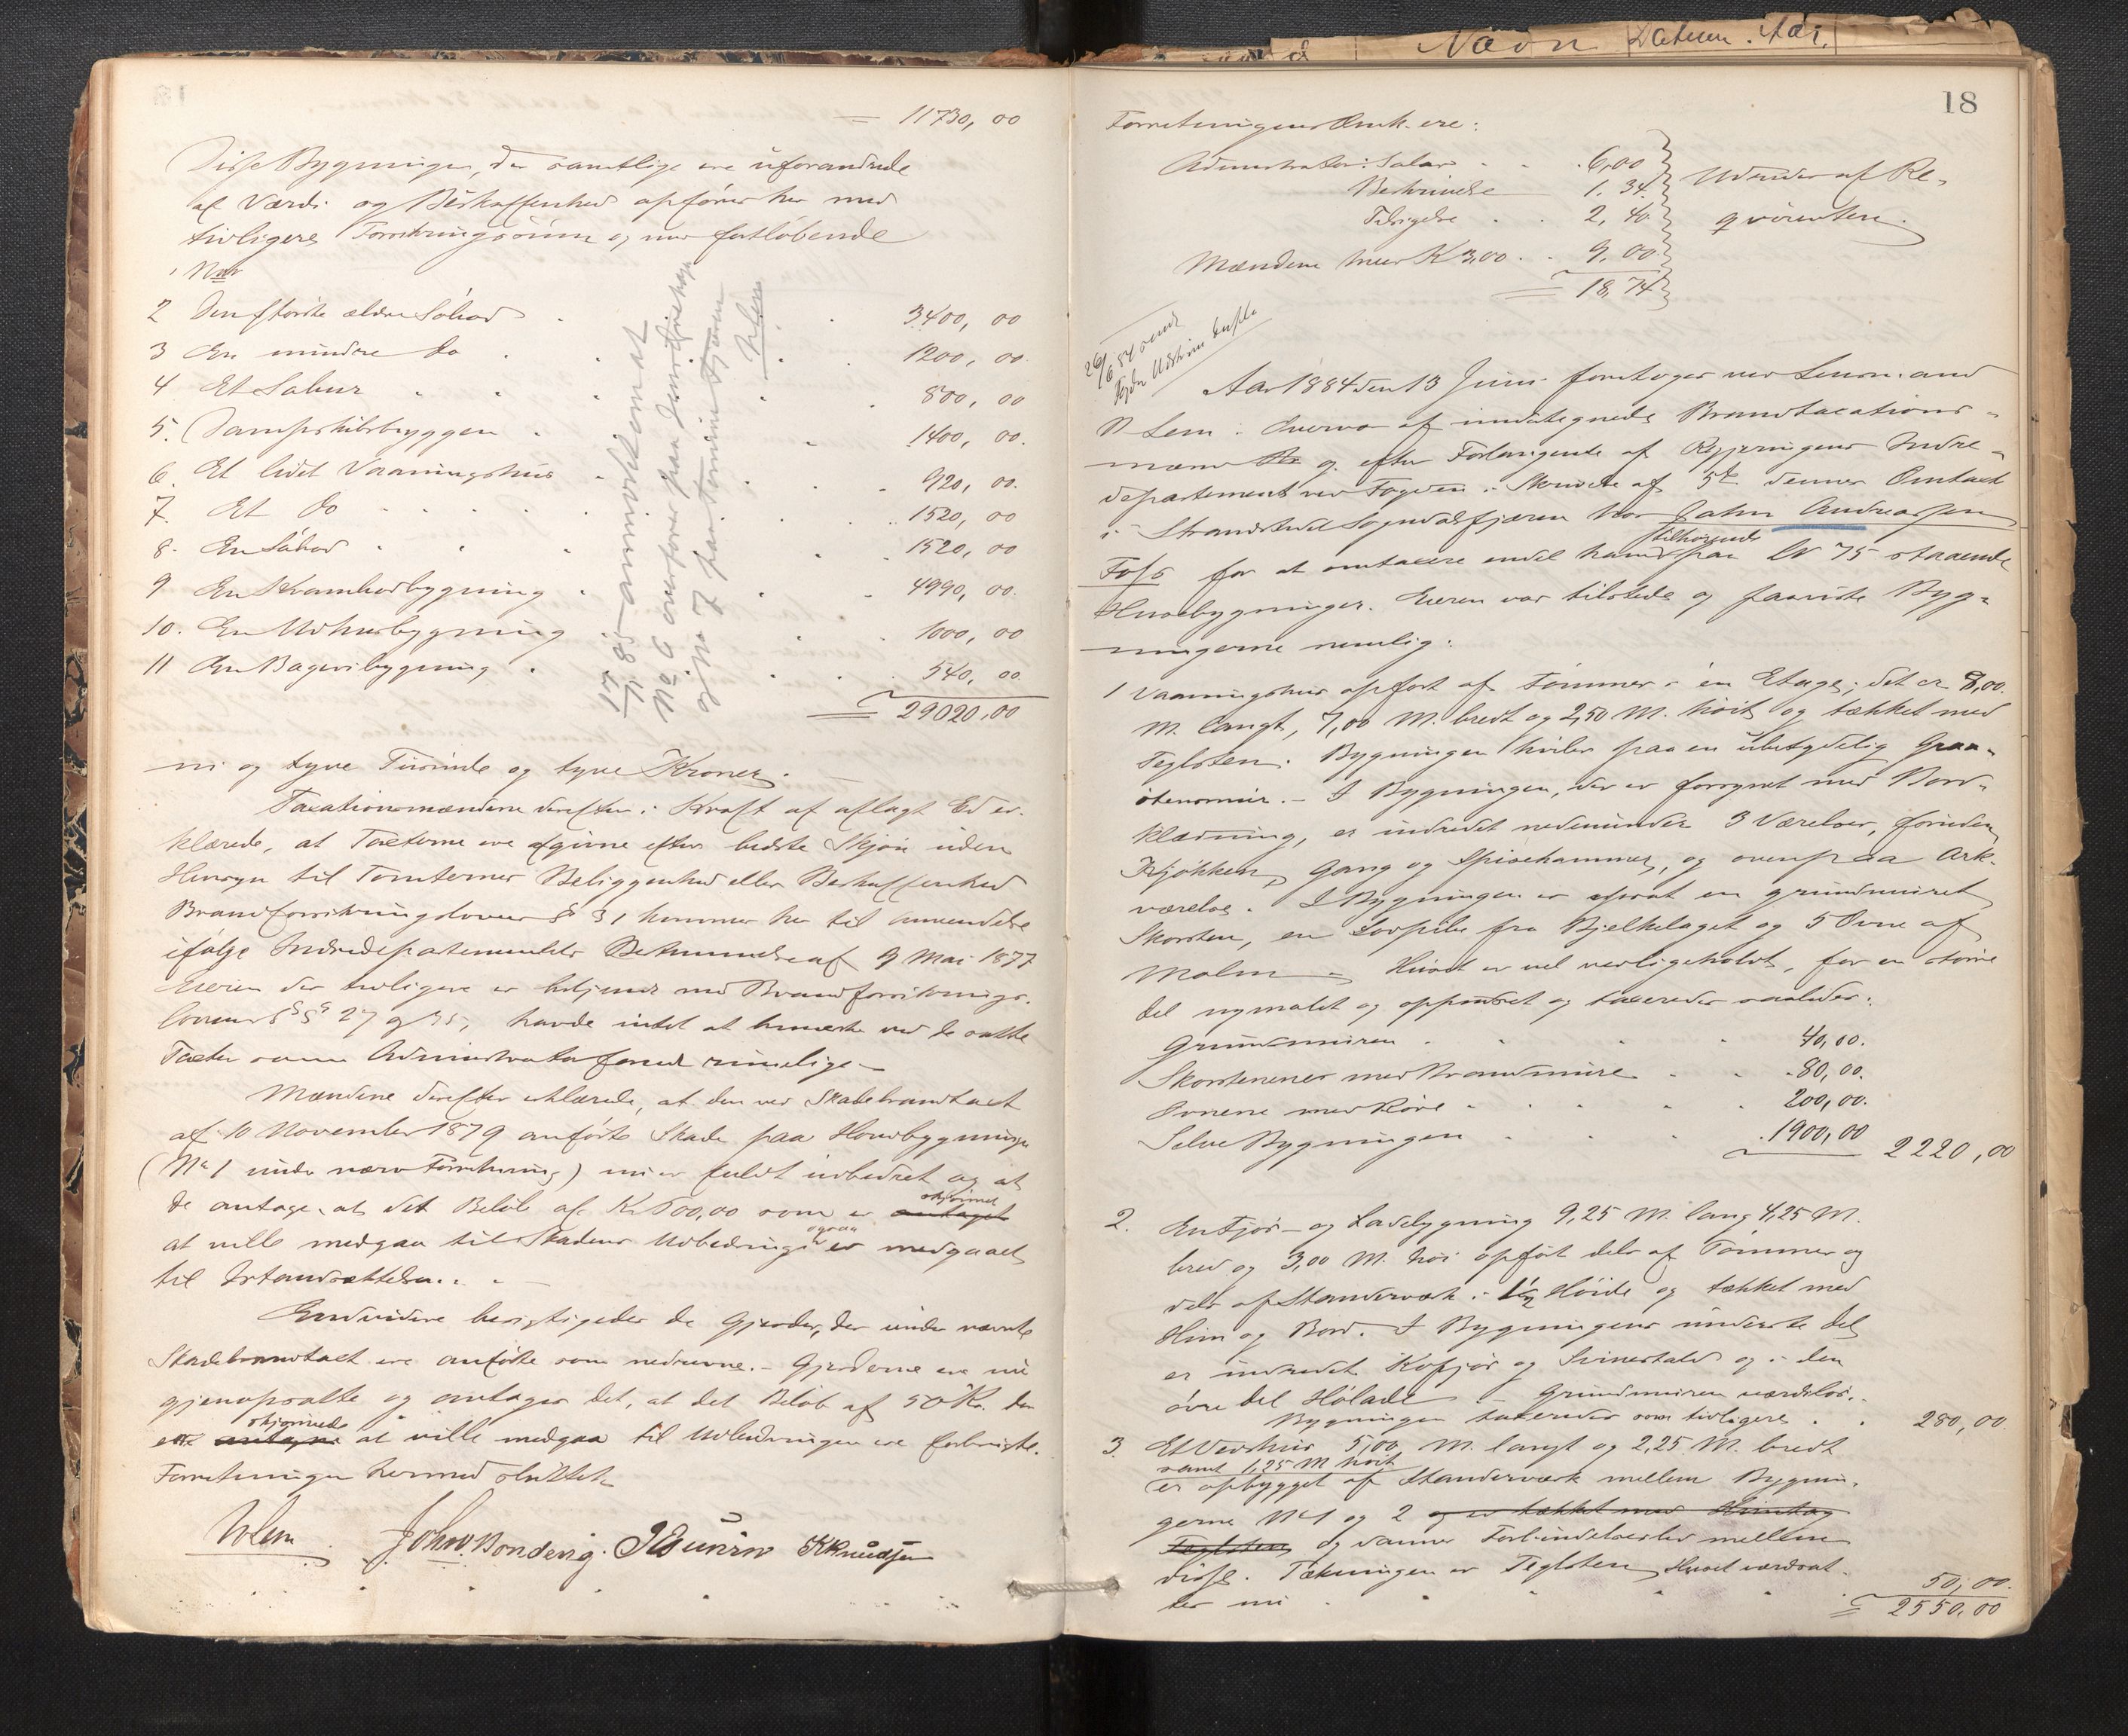 11730,00
Disse Bygninger, der samtlige ere uforandrede
af Værdi og Beskaffenhed opføres her med
tidligere Forsikringssum og under fortløbende
Nrr
2 Den største ældre Søbod 3400,00
3 En mindre do 1200,00
4 Et Sabur 800,00
5. Dampskibsbryggen 1400,00.
6. Et lidet Vaaningshus 920,00.
7. Et do 1520,00
8. En Søbod 1520,00
9 En Krambodbygning 4990,00.
10. En Udhusbygning 1000,00
11 En Bageribygning 540,00.
29020,00
17/7 85 anmodet om at
No 6 overføres paa
og No 7 paa
WLem
ni og tyve Tusinde og tyve Kroner.
Taxationsmændene derefter i Kraft af aflagt Ed er-
klærede, at Taxterne ere afgivne efter bedste Skjøn uden
Hensyn til Tomternes Beliggenhed eller Beskaffenhed
Brandforsikringslovens § 31 kommer her til Anvendelse
ifølge Indredepartementets Bestemmelse af 9 Mai 1877
Eieren der tidligere er bekjendt med Brandforsikrings-
lovens §§ 27 og 35, havde intet at bemærke ved de satte
Taxter som Administrator fandt rimelige.
Mændene derefter erklærede, at den ved Skadebrandtaxt
af 10 November 1879 anførte Skade paa Hovedbygningen
(No 1 under nærv Forretning) nu er fuldt udbedret og at
de antage, at det Beløb af Kr 500,00 som er antaget skjønnet
at ville medgaa til Skadens Udbedring ogsaa er medgaaet
til Istandsættelsen.
Endvidere besigtigedes de Gjerder, der under nævnte
Skadebrandtaxt ere anførte som nedrevne. Gjerderne ere nu
gjenopsatte og antages det, at det Beløb af 50 Kr. der
ere antagne skjønnede at ville medgaa til Udbedringen ere forbrugte.
Forretningen hermed sluttet
WLem John Bondevig. KKnudsen
Nævn Datum. Aar.
18
Forretningens Omk. ere:
Administrator: Salar 6,00
Beskrivelse 1.34
Tilsigelse 2,40
Mændene hver K 3,00 9,00
18,74
Udredes af Re-
qvirenten.
26/6 84 sendt
Fogden Udskrift
Aar 1884 den 13 Juni foretoges ved Lensmand
W Lem i Overvær af undertegnede Brandtaxations-
mænd og efter Forlangende af Regjeringens Indre-
departement ved Fogden i Skrivelse af 5te dennes Omtaxt
i Strandstedet Sogndalsfjæren hos John Andreassen
Foss for at omtaxere endel ham tilhørende paa LN 75 staaende
Husebygninger. Eieren var tilstede og paaviste Byg-
ningerne nemlig:
1 Vaaningshus opført af Tømmer i en Etage; det er 8,00.
M. langt, 7,00 M. bredt og 2,50 M. høit og tækket med
Teglsten. Bygningen hviler paa en ubetydelig Graa-
stensmur. - I Bygningen, der er forsynet med Bord-
klædning, er indredet nedenunder 3 Værelser, foruden
Kjøkken, Gang og Spisekammer, og ovenpaa Ark-
værelse. I Bygningen er opsat en grundmuret
Skorsten, en Sovpibe fra Bjelkelaget og 5 Ovne af
Malm. Huset er vel vedligeholdt, for en større
del nymalet og oppudset og taxeredes saaledes:
Grundmuren 40,00.
Skorstenener med Brandmure 80,00.
Ovnene med Rør 200,00.
Selve Bygningen 1900,00 2220,00
2. En Fjøs- og Ladebygning 9,25 M. lang 4,25 M.
bred og 3,00 M. høi opført dels af Tømmer og
dels af Standværk i 1½ Høide og tækket med
Him og Bord. I Bygningens underste del
er indredet Kofjøs og Svinestald og i den
øvre del Hølade. Grundmuren værdiløs.
Bygningen taxeredes som tidligere 280,00.
3. Et Vedskur 5,00 M. langt og 2,25 M. bredt
samt 1,25 M høit
er opbygget af Standværk mellem Bygnin-
gerne No 1 og 2 og er tækket med Himtag
Teglsten og danner Forbindelsesled mellem
disse. Tækningen er Teglsten, Huset værdsat-
tes nu 50,00.
2550,00